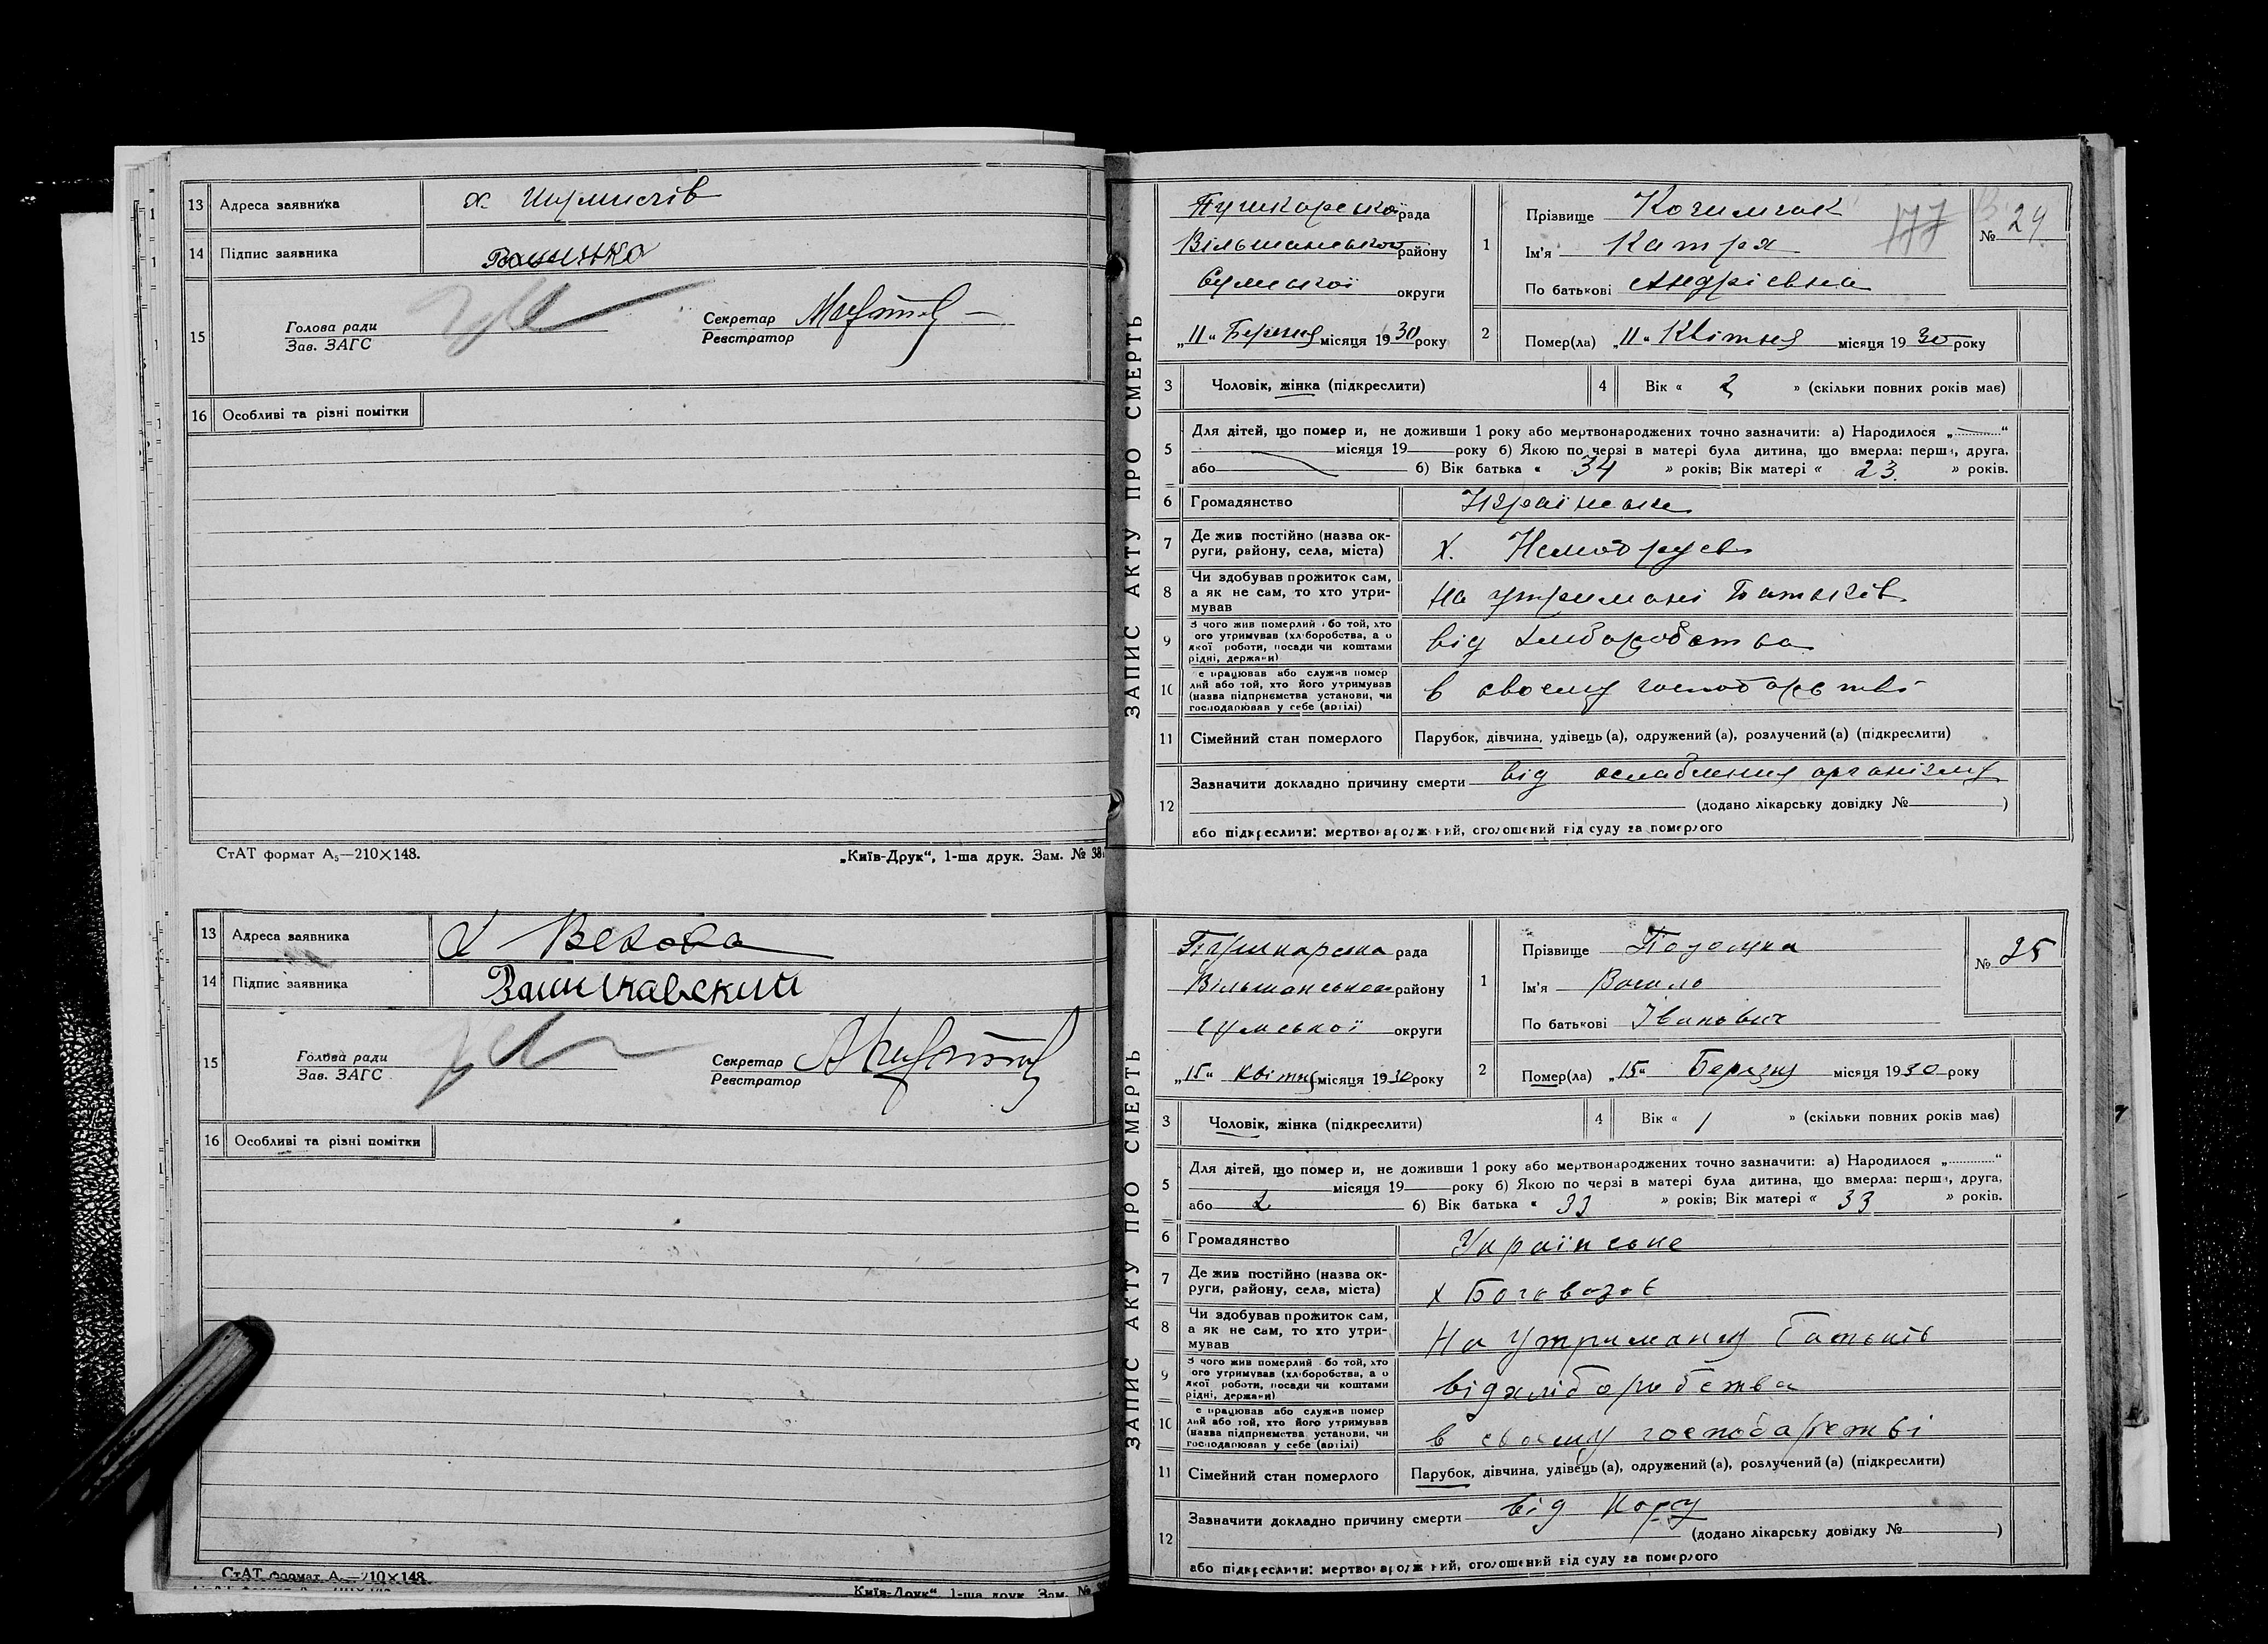 13 Адреса заявника х.
14 Підпис заявника
15 Голова ради
Зав. ЗАГС
Секретар
Реєстратор
16 Особливі та різні помітки
СтАТ формат А₅—210×148.
„Київ-Друк“, 1-ша друк. Зам. № 38
13 Адреса заявника
14 Підпис заявника
15 Голова ради
Зав. ЗАГС
Секретар
Реєстратор
16 Особливі та різні помітки
СтАТ формат А —210×148.
Київ-Друк“, 1-ша друк. Зам. №
ЗАПИС АКТУ ПРО СМЕРТЬ
Пушкарської рада
Вільшанського району
Сумської округи
„11“ Березня місяця 1930 року
1 Прізвище
Ім'я Катря
По батькові Андрієвна
177
№ 24
2 Помер(ла) „11“ Квітня місяця 1930 року
3 Чоловік, жінка (підкреслити)
4 Вік « 2 » (скільки повних років має)
5 Для дітей, що помер и, не доживши 1 року або мертвонароджених точно зазначити: а) Народилося „ “
місяця 19 року б) Якою по черзі в матері була дитина, що вмерла: перша, друга,
або б) Вік батька « 34 » років; Вік матері « 23 » років.
6 Громадянство Українське
7 Де жив постійно (назва ок-
руги, району, села, міста) х.
8 Чи здобував прожиток сам,
а як не сам, то хто утри-
мував На утримані Батьків
9 З чого жив померлий або той, хто
його утримував (хліборобства, а о
якої роботи, посади чи коштами
рідні, держави) від хліборобства
10 е працював або служив помер
лий або той, хто його утримував
(назва підприємства установи, чи
господарював у себе (артілі) в своєму господарстві
11 Сімейний стан померлого Парубок, дівчина, удівець (а), одружений (а), розлучений (а) (підкреслити)
12 Зазначити докладно причину смерти від ослаблення організму
(додано лікарську довідку № )
або підкреслити: мертвонароджений, оголошений від суду за померлого
ЗАПИС АКТУ ПРО СМЕРТЬ
Пушкарська рада
Вільшанського району
Сумської округи
„15“ Квітня місяця 1930 року
1 Прізвище
Ім'я Василь
По батькові Іванович
№ 25
2 Помер(ла) „15“ Березня місяця 1930 року
3 Чоловік, жінка (підкреслити)
4 Вік « 1 » (скільки повних років має)
5 Для дітей, що помер и, не доживши 1 року або мертвонароджених точно зазначити: а) Народилося „ “
місяця 19 року б) Якою по черзі в матері була дитина, що вмерла: перша, друга,
або 2 б) Вік батька « 33 » років; Вік матері « 33 » років.
6 Громадянство Українське
7 Де жив постійно (назва ок-
руги, району, села, міста) х
8 Чи здобував прожиток сам,
а як не сам, то хто утри-
мував На утриманню Батьків
9 З чого жив померлий або той, хто
його утримував (хліборобства, а о
якої роботи, посади чи коштами
рідні, держави) від хліборобства
10 е працював або служив помер
лий або той, хто його утримував
(назва підприємства установи, чи
господарював у себе (артілі) в своєму господарстві
11 Сімейний стан померлого Парубок, дівчина, удівець (а), одружений (а), розлучений (а) (підкреслити)
12 Зазначити докладно причину смерти від Кору
(додано лікарську довідку № )
або підкреслити: мертвонароджений, оголошений від суду за померлого